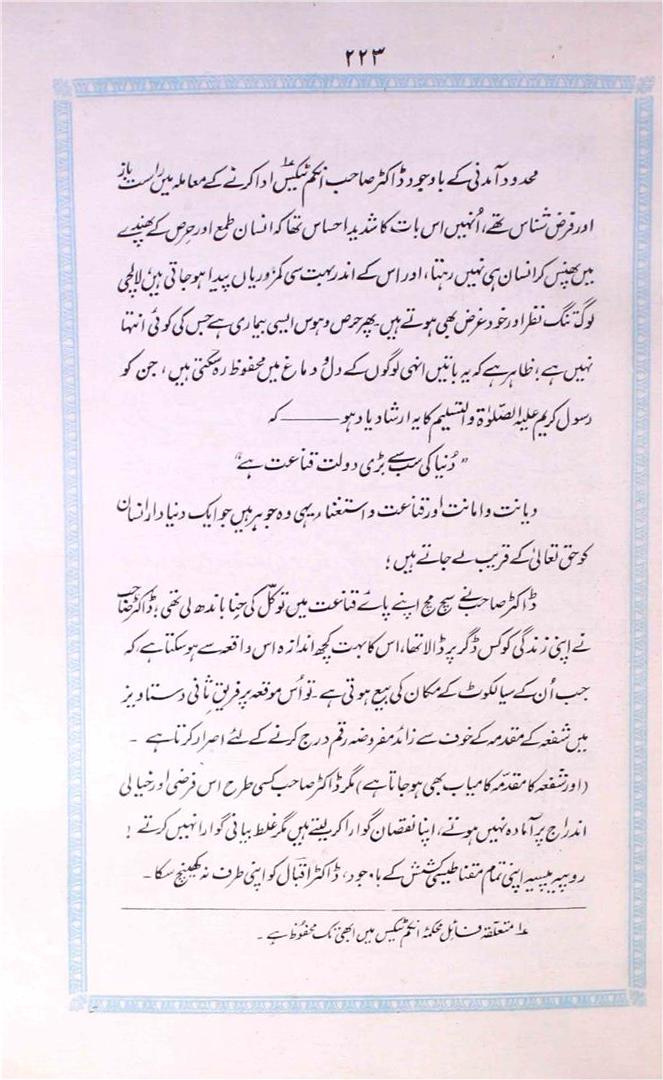 ۲۲۳
محدود آمدنی کے باوجود ڈاکٹر صاحب انکم ٹیکس؂۱ ادا کرنے کے معاملہ میں راست باز
اور فرض شناس تھے، اُنہیں اس بات کا شدید احساس تھا کہ انسان طمع اور حرص کے پھندے
میں پھنس کر انسان ہی نہیں رہتا، اور اس کے اندر بہت سی کمزوریاں پیدا ہو جاتی ہیں، لالچی
لوگ تنگ نظر اور خود غرض بھی ہوتے ہیں۔ پھر حرص و ہوس ایسی بیماری ہے جس کی کوئی انتہا
نہیں ہے، ظاہر ہے کہ یہ باتیں انہی لوگوں کے دل و دماغ میں محفوظ رہ سکتی ہیں، جن کو
رسول کریم علیہ الصّلوٰۃ والتسلیم کا یہ ارشاد یاد ہو ——— کہ
"دُنیا کی سب سے بڑی دولت قناعت ہے"
دیانت و امانت اور قناعت و استغناء یہی وہ جوہر ہیں جو ایک دنیا دار انسان
کو حق تعالیٰ کے قریب لے جاتے ہیں؛
ڈاکٹر صاحب نے سچ مچ اپنے پائے قناعت میں توکّل کی حنا باندھ لی تھی؛ ڈاکٹر صاحب
نے اپنی زندگی کو کس ڈگر پر ڈالا تھا، اس کا بہت کچھ اندازہ اس واقعہ سے ہو سکتا ہے، کہ
جب اُن کے سیالکوٹ کے مکان کی بیع ہوتی ہے۔ تو اُس موقعہ پر فریق ثانی دستاویز
میں شفعہ کے مقدمہ کے خوف سے زائد مفروضہ رقم درج کرنے کے لئے اصرار کرتا ہے۔
(اور شفعہ کا مقدّمہ کامیاب بھی ہو جاتا ہے) مگر ڈاکٹر صاحب کسی طرح اس فرضی اور خیالی
اندراج پر آمادہ نہیں ہوتے، اپنا نقصان گوارا کر لیتے ہیں مگر غلط بیانی گوارا نہیں کرتے!
روپیہ پیسہ اپنی تمام مقناطیسی کشش کے باوجود، ڈاکٹر اقبال کو اپنی طرف نہ کھینچ سکا۔
؂۱ متعلقہ فائل محکمۂ انکم ٹیکس میں ابھی تک محفوظ ہے۔